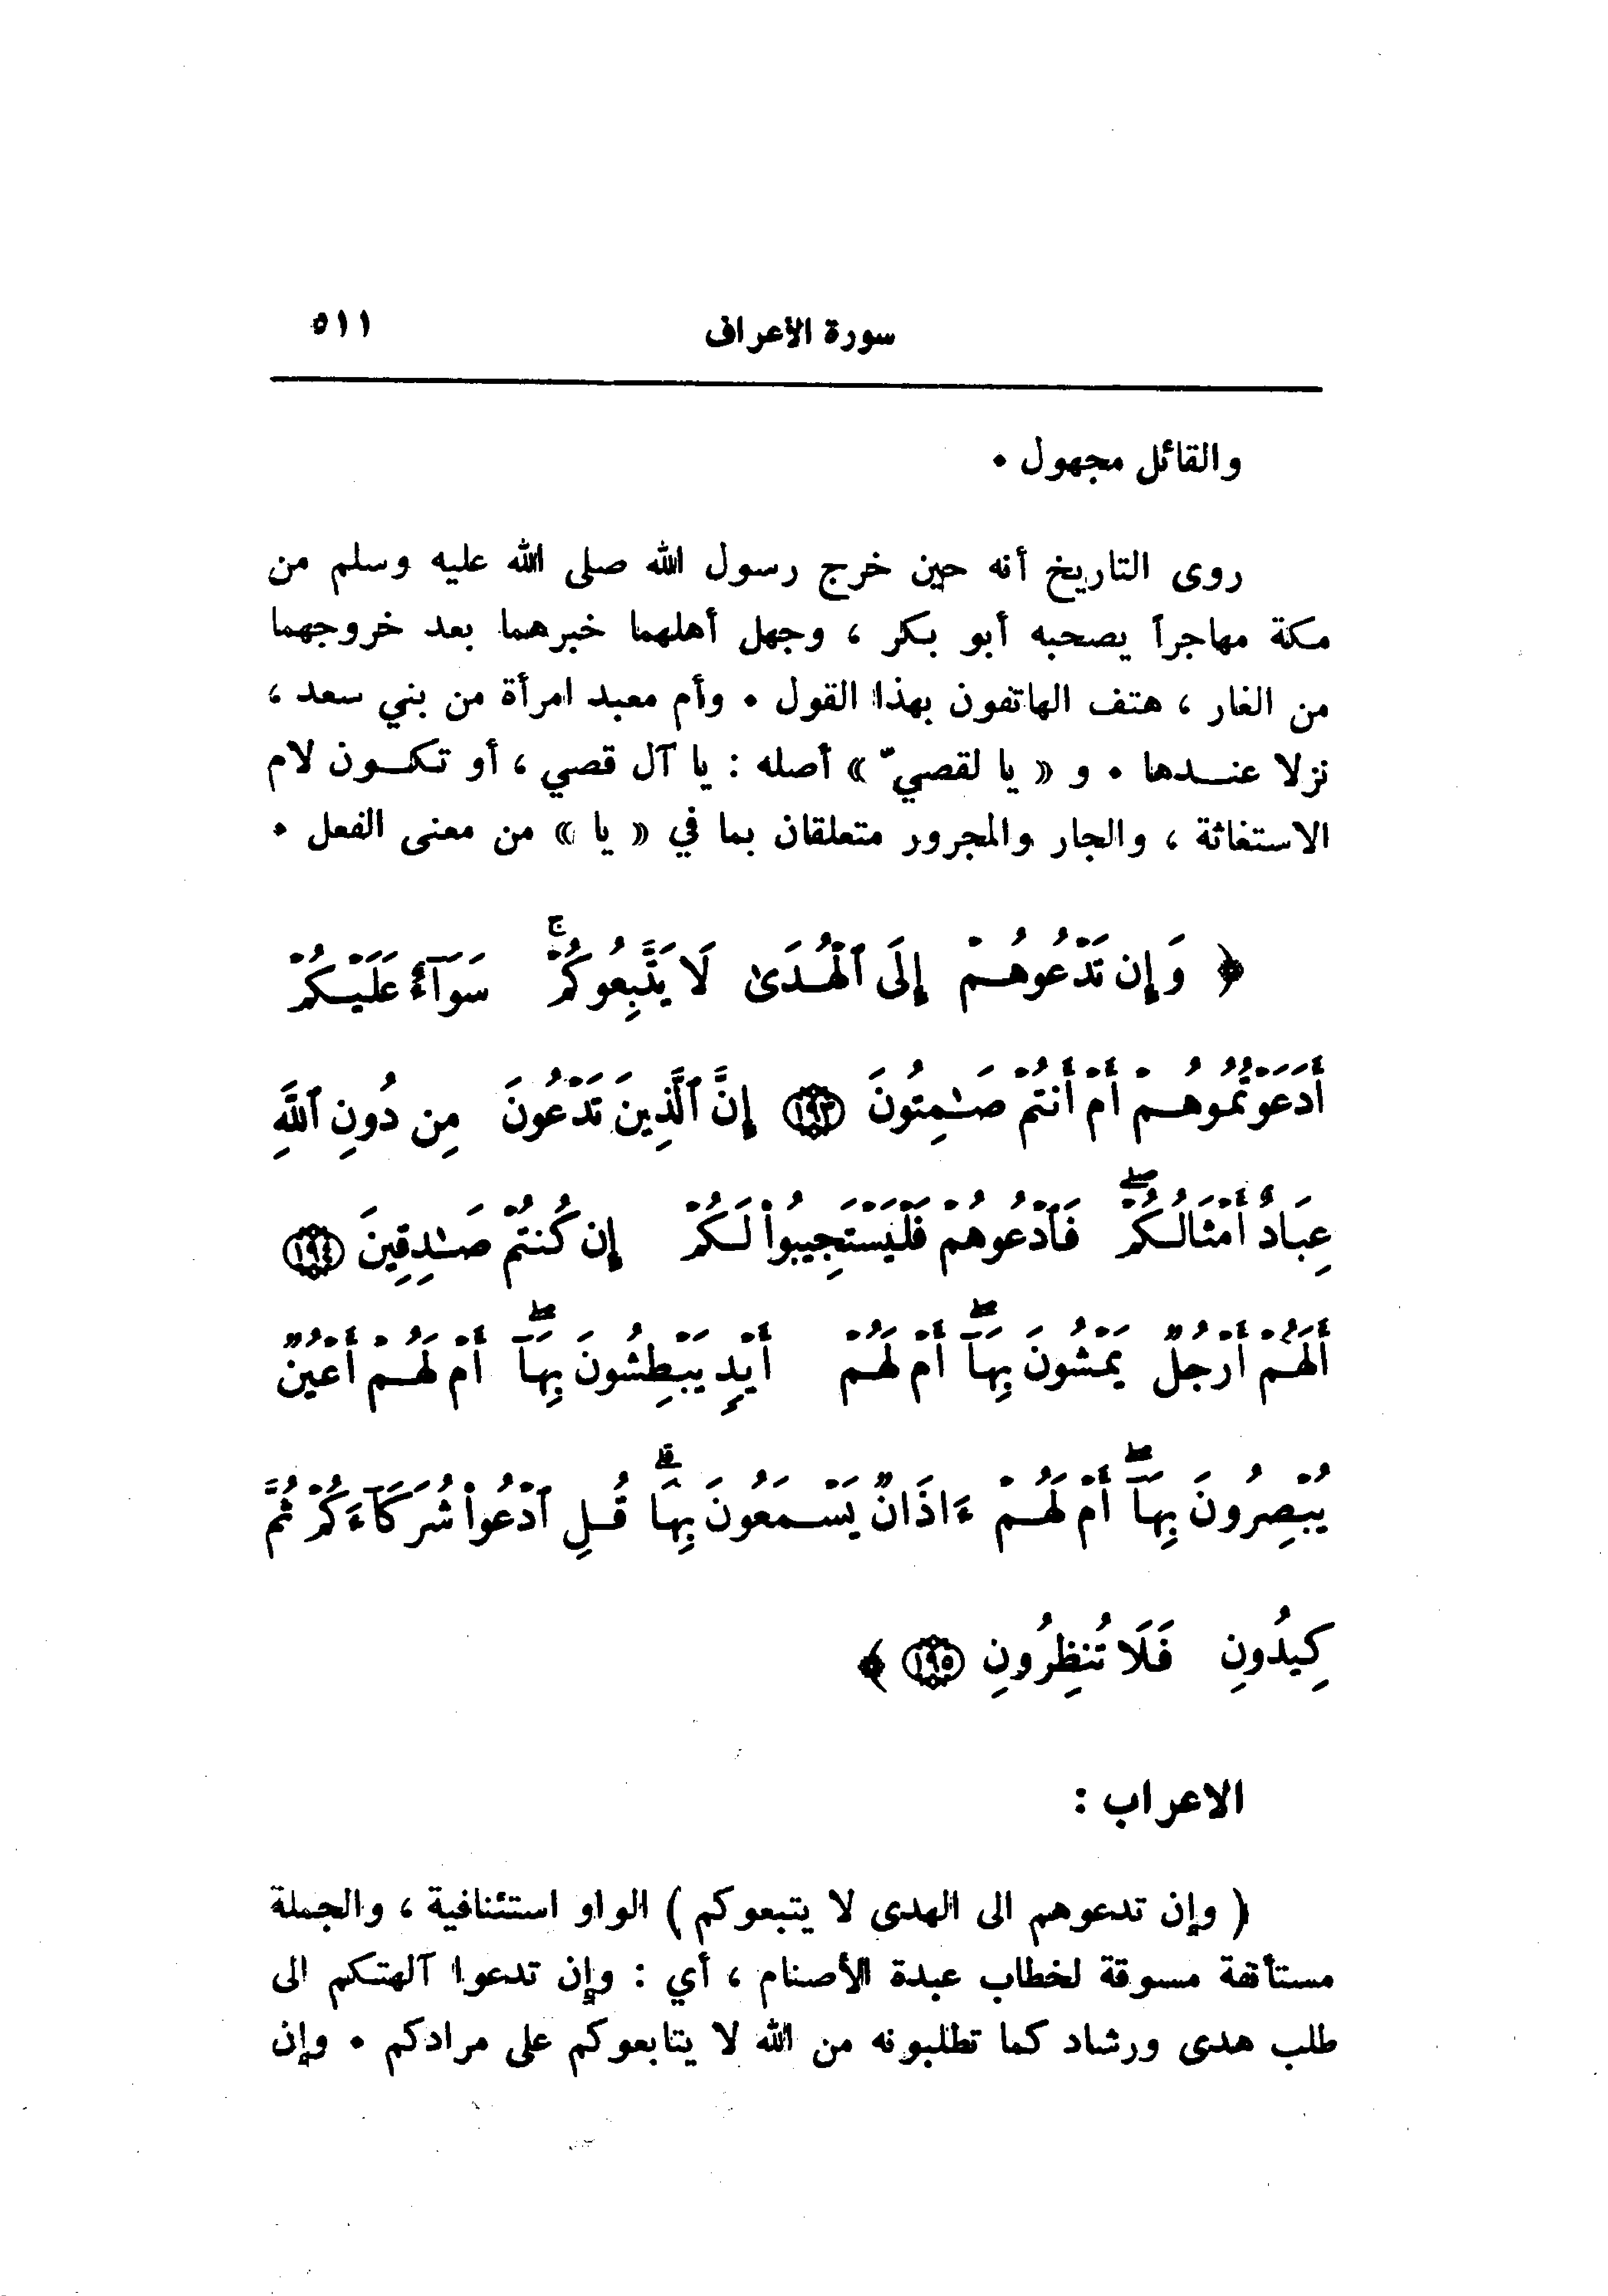 سورة الأعراف ٥١١
والقائل مجهول ٠
روى التاريخ أنه حين خرج رسول الله صلى الله عليه وسلم من
مكة مهاجراً يصحبه أبو بكر ، وجهل أهلهما خبرهما بعد خروجهما
من الغار ، هتف الهاتفون بهذا القول ٠ وأم معبد امرأة من بني سعد ،
نزلا عندها ٠ و « يا لقصيّ » أصله : يا آل قصي ، أو تكون لام
الاستغاثة ، والجار والمجرور متعلقان بما في « يا » من معنى الفعل ٠
﴿ وَإِن تَدْعُوهُمْ إِلَى ٱلْهُدَىٰ لَا يَتَّبِعُوكُمْ ۚ سَوَآءٌ عَلَيْكُمْ
أَدَعَوْتُمُوهُمْ أَمْ أَنتُمْ صَـٰمِتُونَ ١٩٣ إِنَّ ٱلَّذِينَ تَدْعُونَ مِن دُونِ ٱللَّهِ
عِبَادٌ أَمْثَالُكُمْ ۖ فَٱدْعُوهُمْ فَلْيَسْتَجِيبُوا۟ لَكُمْ إِن كُنتُمْ صَـٰدِقِينَ ١٩٤
أَلَهُمْ أَرْجُلٌ يَمْشُونَ بِهَآ ۖ أَمْ لَهُمْ أَيْدٍ يَبْطِشُونَ بِهَآ ۖ أَمْ لَهُمْ أَعْيُنٌ
يُبْصِرُونَ بِهَآ ۖ أَمْ لَهُمْ ءَاذَانٌ يَسْمَعُونَ بِهَا ۗ قُلِ ٱدْعُوا۟ شُرَكَآءَكُمْ ثُمَّ
كِيدُونِ فَلَا تُنظِرُونِ ١٩٥ ﴾
الاعراب :
( وإن تدعوهم الى الهدى لا يتبعوكم ) الواو استئنافية ، والجملة
مستأنفة مسوقة لخطاب عبدة الأصنام ، أي : وإن تدعوا آلهتكم الى
طلب هدى ورشاد كما تطلبونه من الله لا يتابعوكم على مرادكم ٠ وإن